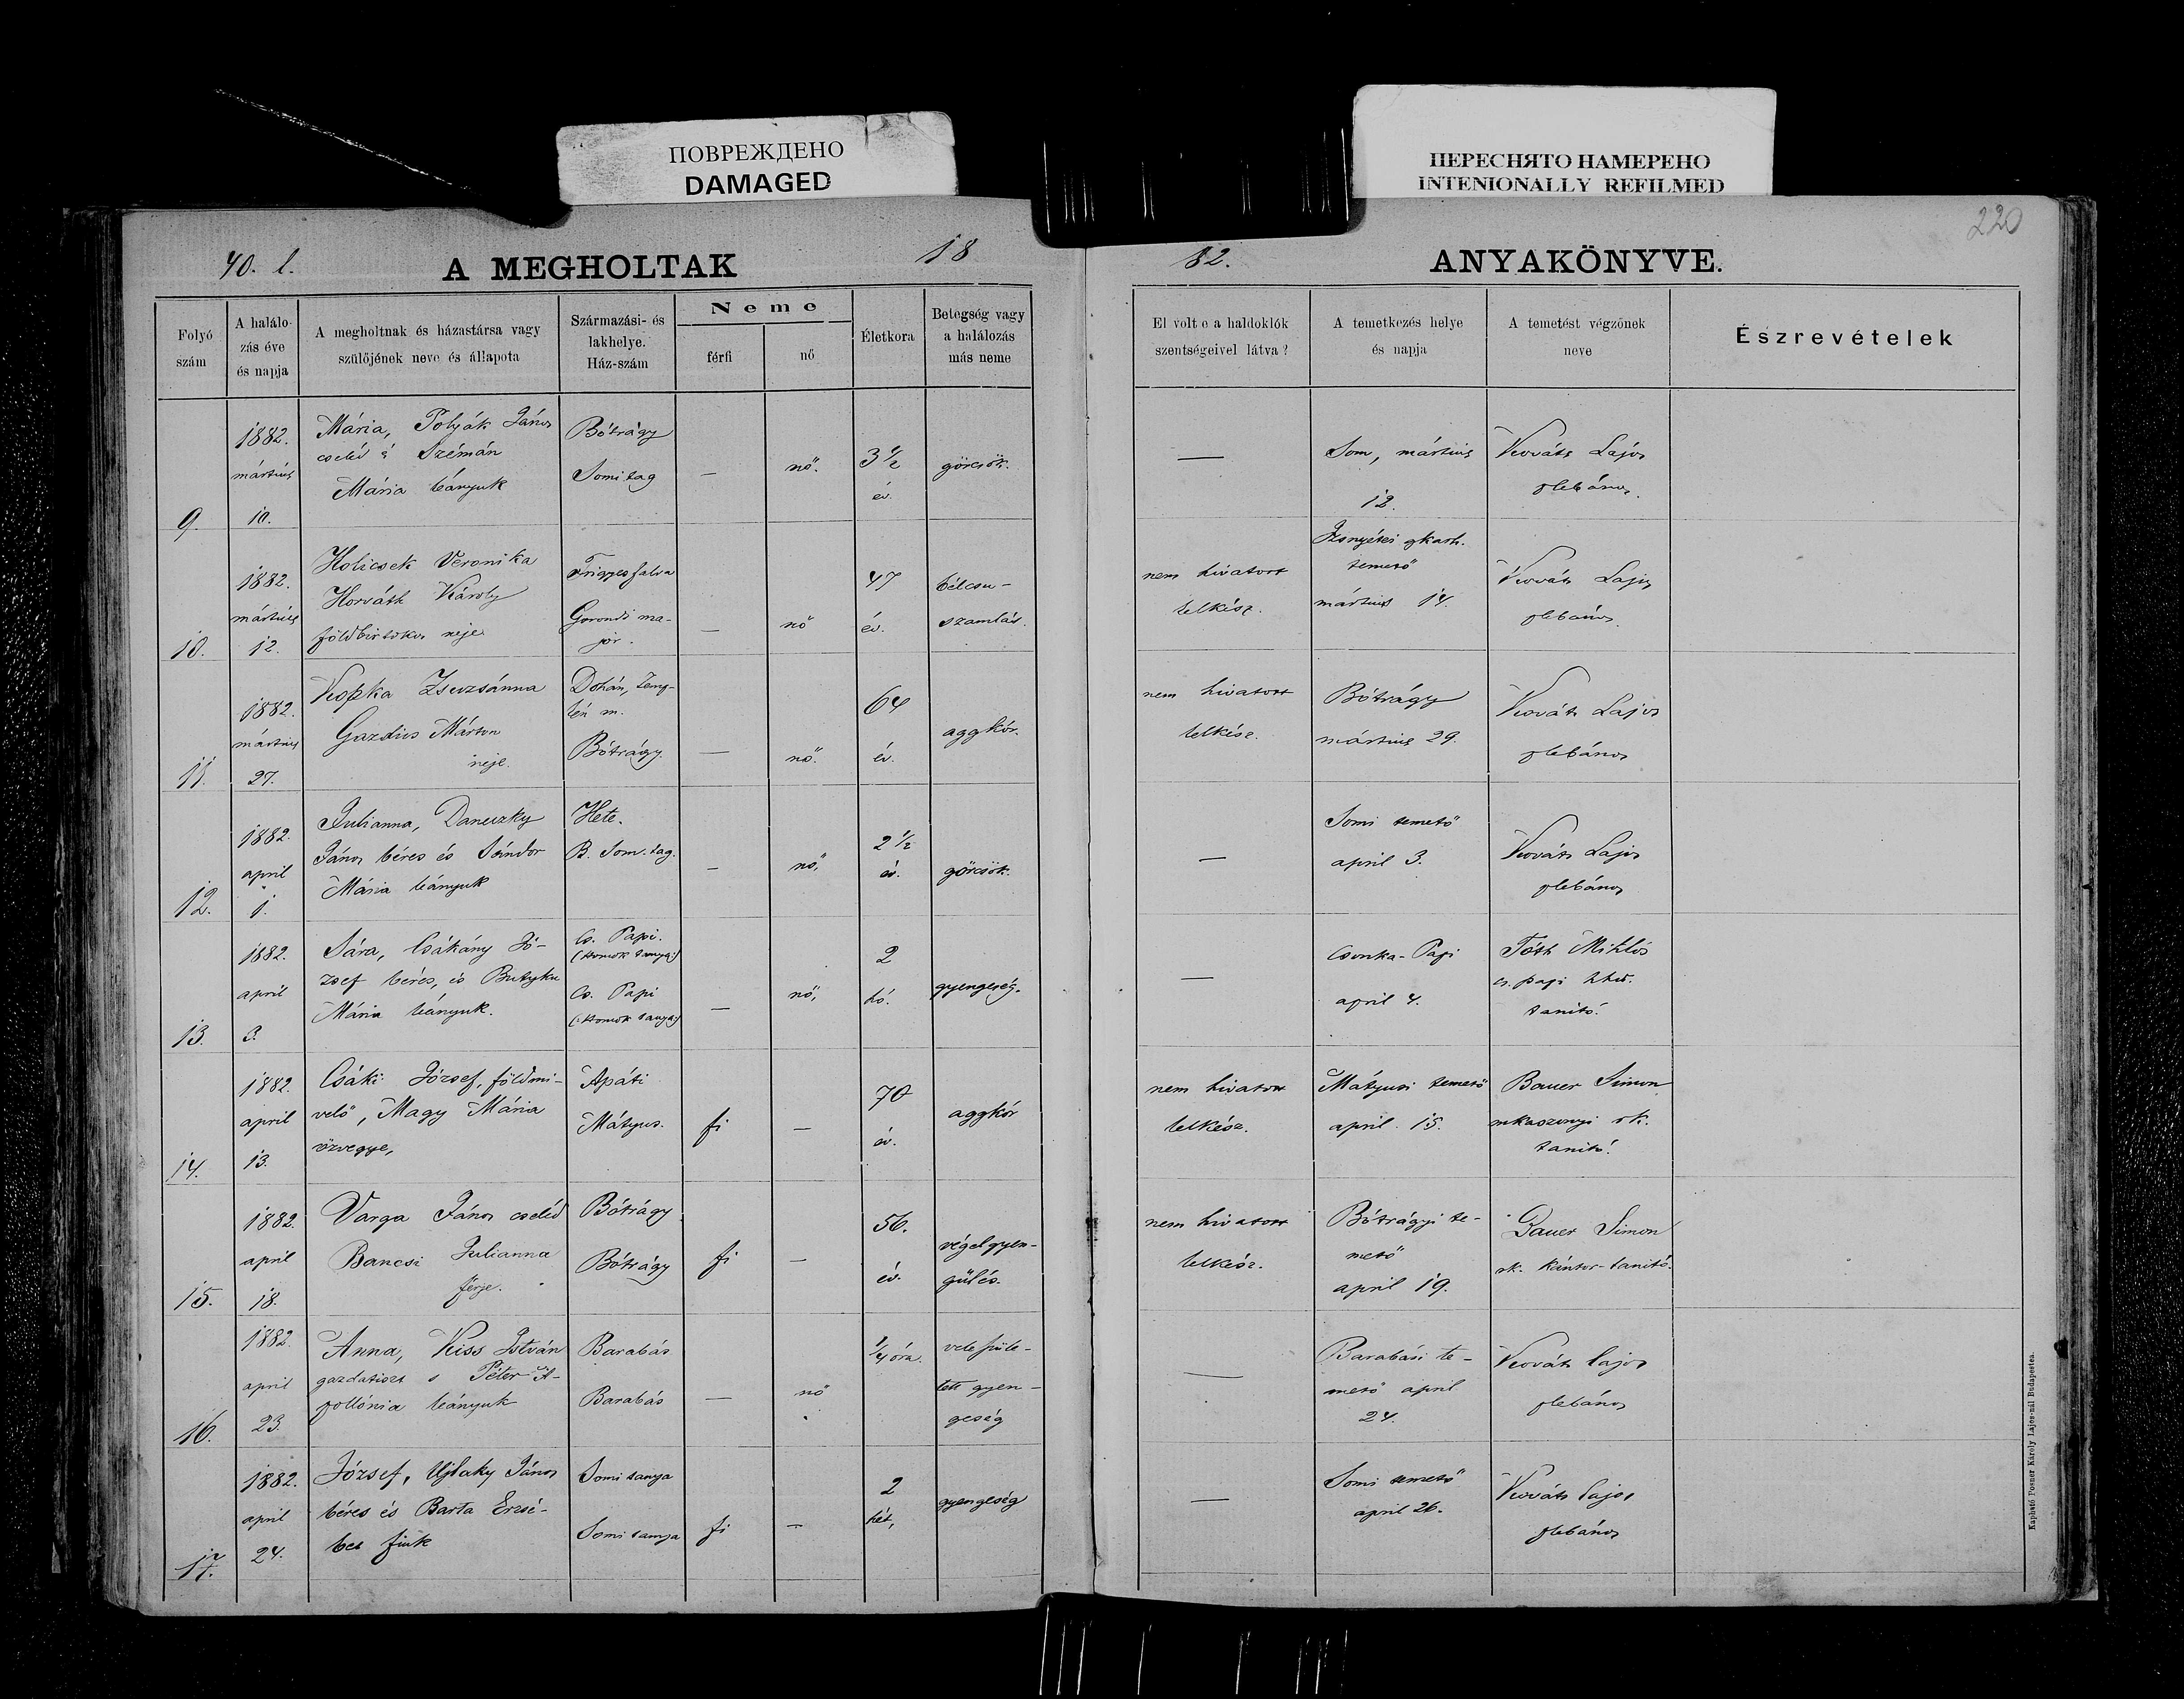 ПОВРЕЖДЕНО
DAMAGED
ПЕРЕСНЯТО НАМЕРЕНО
INTENIONALLY REFILMED
220
40. l.
A MEGHOLTAK
18
82.
ANYAKÖNYVE.
Folyó szám
A halálo-
zás éve
és napja
A megholtnak és házastársa vagy
szülőjének neve és állapota
Származási- és
lakhelye.
Ház-szám
Neme
férfi
nő
Életkora
Betegség vagy
a halálozás
más neme
El volt e a haldoklók
szentségeivel látva?
A temetkezés helye
és napja
A temetést végzőnek
neve
Észrevételek
9.
1882.
mártius
10.
Mária, Polyák János
cseléd s Szémán
Mária leányuk
Bótrágy
Somi tag
—
nő.
3 1/2
év.
görcsök.
—
Som, mártius
12.
Kováts Lajos
plebános.
10.
1882.
mártius
12.
Holicsek Veronika
Horváth Károly
földbirtokos neje
Frigyesfalva
Gorondi ma-
jor.
—
nő
47
év.
bélcsu-
szamlás.
nem hivatott
lelkész.
temető
mártius 14.
Kováts Lajos
plebános.
11.
1882.
mártius
27.
Zsuzsánna
Gazdius Márton
neje.
Dohán, Zemp-
lén m.
Bótrágy.
—
nő.
64
év.
aggkór.
nem hivatott
lelkész.
Bótrágy
mártius 29.
Kováts Lajos
plebános
12.
1882.
april
1.
Julianna, Daneczky
János béres és Sándor
Mária leányuk
Hete.
B. Som. tag.
—
nő,
2 1/2
év.
görcsök.
—
Somi temető
april 3.
Kováts Lajos
plebános
13.
1882.
april
3.
Sára, Csákány Jó-
zsef béres, és Butyku
Mária leányuk.
Cs. Papi.
(:Homok tanya:)
Cs. Papi
(:Homok tanya:)
—
nő,
2
hó.
gyengeség.
—
Csonka-Papi
april 4.
Tóth Miklós
cs. papi
tanitó.
14.
1882.
april
13.
Csáki József, földmi-
velő, Nagy Mária
özvegye,
Apáti
Mátyus.
fi
—
70
év.
aggkór
nem hivatott
lelkész.
Mátyusi temető
april 15.
Bauer Simon
mkaszonyi rk.
tanitó.
15.
1882.
april
18.
Varga János cseléd
Bancsi Julianna
férje.
Bótrágy
Bótrágy
fi
—
56.
év.
végelgyen-
gülés.
nem hivatott
lelkész.
Bótrágyi te-
mető
april 19.
Bauer Simon
rk. kántor-tanitó.
16.
1882.
april
23.
Anna, Kiss István
gazdatiszt s Péter A-
pollónia leányuk
Barabás
Barabás
—
nő
1/4 óra.
vele szüle-
tett gyen-
geség
—
Barabási te-
mető april
24.
Kováts Lajos
plebános
17.
1882.
april
24.
József, Ujlaky János
béres és Barta Erzsé-
bet fiuk
Somi tanya
Somi tanya
fi
—
2
hét,
gyengeség
—
Somi temető
april 26.
Kováts Lajos
plebános
Kapható Posner Károly Lajos-nál Budapesten.